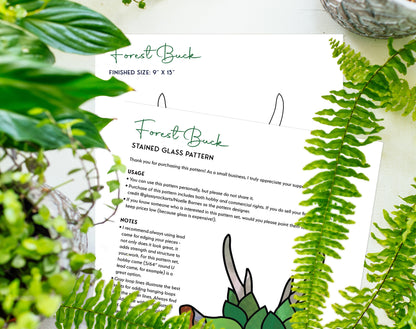 Forest Buck
FINISHED SIZE: 9" X 15"
Forest Buck
STAINED GLASS PATTERN
Thank you for purchasing this pattern! As a small business, I truly appreciate your suppor
USAGE
• You can use this pattern personally, but please do not share it.
• Purchase of this pattern includes both hobby and commercial rights. If you do sell your
credit @glassyrockarts/Noelle Barnes as the pattern designer.
• If you know someone who is interested in this pattern set, would you please point them
keep prices low (because glass is expensive!).
NOTES
• I recommend always using lead
came for edging your pieces -
not only does it look great, it
adds strength and structure to
your work. For this pattern set,
hobby came (5/64" round U
lead came, for example) is a
great option.
• Gray loop lines illustrate the best
for adding hanging loops
lines. Always find